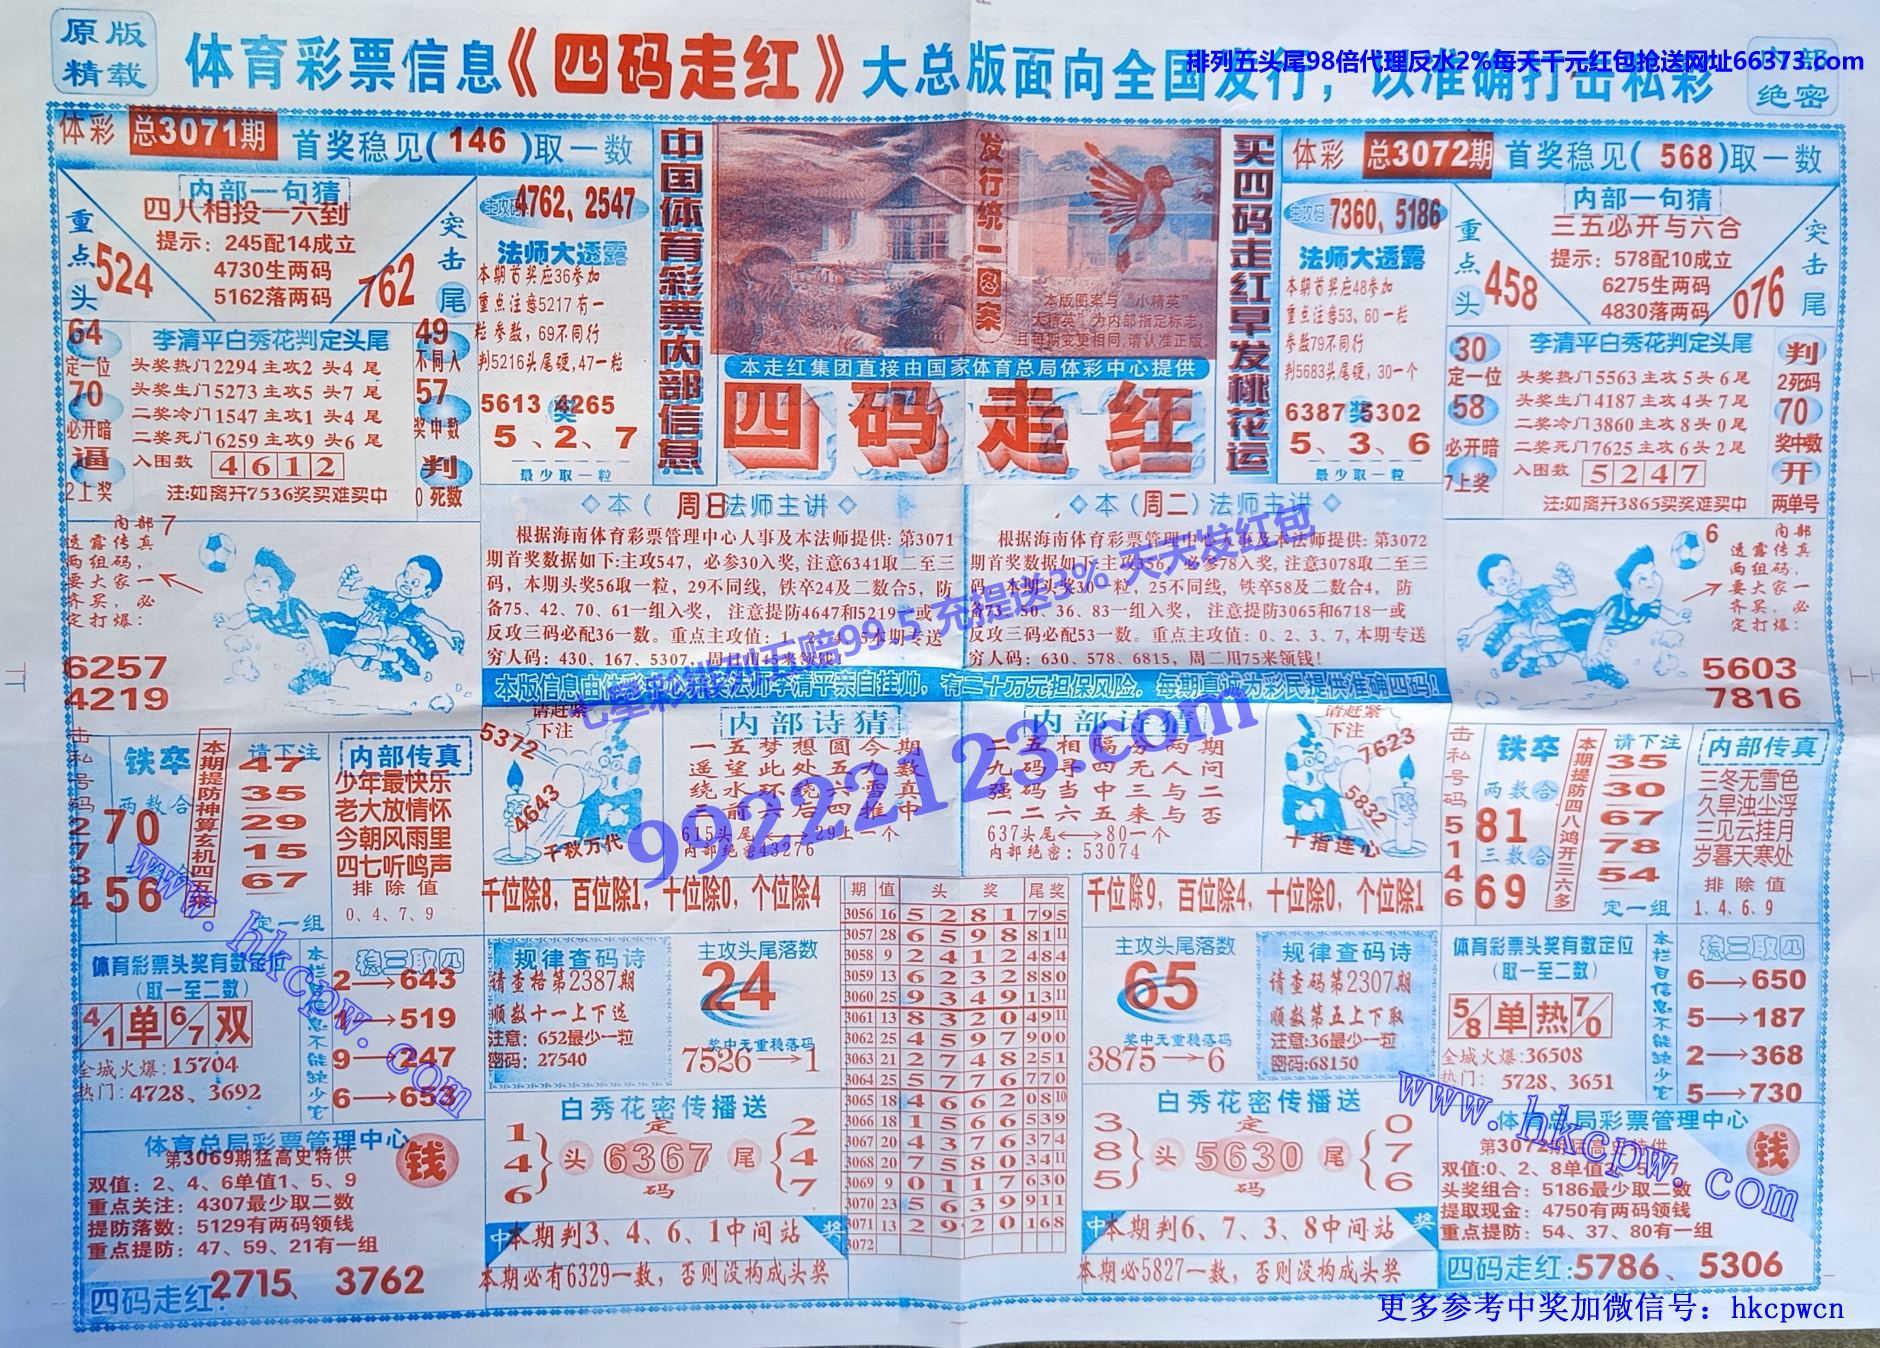 原版
精载
体育彩票信息《四码走红》大总版面向全国发行，以准确打击私彩
绝密
排列五头尾98倍代理反水2%每天千元红包抢送网址66373.com
体彩 总3071期 首奖稳见(146)取一数
内部一句猜
四八相投一六到
提示：245配14成立
4730生两码
5162落两码
重点头
524
突击尾
762
主攻码4762、2547
法师大透露
本期首奖应36参加
重点注意5217有一
粒参数，69不同行
判5216头尾硬，47一粒
5613奖4265
5、2、7
最少取一粒
64
定一位
70
必开暗
逼
2上奖
李清平白秀花判定头尾
头奖热门2294主攻2头4尾
头奖生门5273主攻5头7尾
二奖冷门1547主攻1头4尾
二奖死门6259主攻9头6尾
入围数 4612
注:如离开7536奖买难买中
49
不同入
57
奖中数
判
0死数
中国体育彩票内部信息
发行统一图案
本版图案与“小精英”、
“大精英”为内部指定标志，
且每期变更相同，请认准正版。
本走红集团直接由国家体育总局体彩中心提供
四码走红
买四码走红早发桃花运
体彩 总3072期 首奖稳见(568)取一数
主攻码7360、5186
法师大透露
本期首奖应48参加
重点注意53、60一粒
参数79不同行
判5683头尾硬，30一个
6387奖5302
5、3、6
最少取一粒
内部一句猜
三五必开与六合
提示：578配10成立
6275生两码
4830落两码
重点头
458
突击尾
076
30
定一位
58
必开暗
7上奖
李清平白秀花判定头尾
头奖热门5563主攻5头6尾
头奖生门4187主攻4头7尾
二奖冷门3860主攻8头0尾
二奖死门7625主攻6头2尾
入围数 5247
注:如离开3865买奖难买中
判
2死码
70
奖中数
开
两单号
内部7
透露传真
两组码，
要大家一
齐买，必
定打爆：
6257
4219
◇本（周日）法师主讲◇
根据海南体育彩票管理中心人事及本法师提供：第3071
期首奖数据如下:主攻547，必参30入奖，注意6341取二至三
码，本期头奖56取一粒，29不同线，铁卒24及二数合5，防
备75、42、70、61一组入奖，注意提防4647和5219一或
反攻三码必配36一数。重点主攻值：1、2、4、5本期专送
穷人码：430、167、5307，周日用45来领钱！
◇本（周二）法师主讲◇
根据海南体育彩票管理中心人事及本法师提供：第3072
期首奖数据如下:主攻356，必参78入奖，注意3078取二至三
码，本期头奖30一粒，25不同线，铁卒58及二数合4，防
备73、50、36、83一组入奖，注意提防3065和6718一或
反攻三码必配53一数。重点主攻值：0、2、3、7，本期专送
穷人码：630、578、6815，周二用75来领钱！
6内部
透露传真
两组码，
要大家一
齐买，必
定打爆：
5603
7816
七星彩排列五赔99.5 充提送3% 天天发红包
99222123.com
本版信息由体彩中心采奖法师李清平亲自挂帅，有二十万元担保风险，每期真诚为彩民提供准确四码！
击私号码2734
铁卒
两数合
70
56
本期提防神算玄机四五乘
请下注
47
35
29
15
67
定一组
内部传真
少年最快乐
老大放情怀
今朝风雨里
四七听鸣声
排除值
0、4、7、9
5372
请赶紧
下注
4643
千秋万代
内部诗猜
一五梦想圆今期
遥望此处五九数
绕水环绕六零真
二前六后四推中
615头尾⟷29上一个
内部绝密43276
内部诗猜
二五相隔分两期
九码寻四无人问
强码当中三与二
一二六五来与否
637头尾⟷80一个
内部绝密：53074
请赶紧
下注
7623
5832
十指连心
击私号码5146
铁卒
两数合
81
三数合
69
本期提防四八鸿开三六多
请下注
35
30
67
78
54
定一组
内部传真
三冬无雪色
久旱浊尘浮
三见云挂月
岁暮天寒处
排除值
1、4、6、9
千位除8，百位除1，十位除0，个位除4
千位除9，百位除4，十位除0，个位除1
期 值 头奖 尾奖
3056 16 5281 795
3057 28 6598 81 11
3058 9 2412 484
3059 13 6232 880
3060 25 9349 13 11
3061 13 8320 49 11
3062 25 4597 900
3063 21 2748 251
3064 25 5776 770
3065 18 4662 08 10
3066 18 1566 539
3067 20 4376 374
3068 20 7580 34 11
3069 9 0117 630
3070 23 5639 911
3071 13 2920 168
3072
体育彩票头奖有数定位
（取一至二数）
4/1单6/7双
全城火爆：15704
热门：4728、3692
本栏目信息不能缺少它
稳三取四
2→643
1→519
9→247
6→653
规律查码诗
请查格第2387期
顺数十一上下选
注意：652最少一粒
密码：27540
主攻头尾落数
24
奖中无重稳落码
7526→1
主攻头尾落数
65
奖中无重稳落码
3875→6
规律查码诗
请查码第2307期
顺数第五上下取
注意:36最少一粒
密码:68150
体育彩票头奖有数定位
（取一至二数）
5/8单热7/0
全城火爆:36508
热门：5728、3651
本栏目信息不能缺少它
稳三取四
6→650
5→187
2→368
5→730
体育总局彩票管理中心
第3069期猛高史特供
钱
双值：2、4、6单值1、5、9
重点关注：4307最少取二数
提防落数：5129有两码领钱
重点提防：47、59、21有一组
四码走红：2715、3762
白秀花密传播送
1
4
6
头
定
6367
码
尾
2
4
7
中本期判3、4、6、1中间站奖
本期必有6329一数，否则没构成头奖
白秀花密传播送
3
8
5
头
定
5630
码
尾
0
7
6
中本期判6、7、3、8中间站奖
本期必5827一数，否则没构成头奖
体育总局彩票管理中心
第3072期猛高史特供
钱
双值:0、2、8单值3、5、7
头奖组合：5186最少取二数
提取现金：4750有两码领钱
重点提防：54、37、80有一组
四码走红：5786、5306
www.hkcpw.com
www.hkcpw.com
更多参考中奖加微信号：hkcpwcn